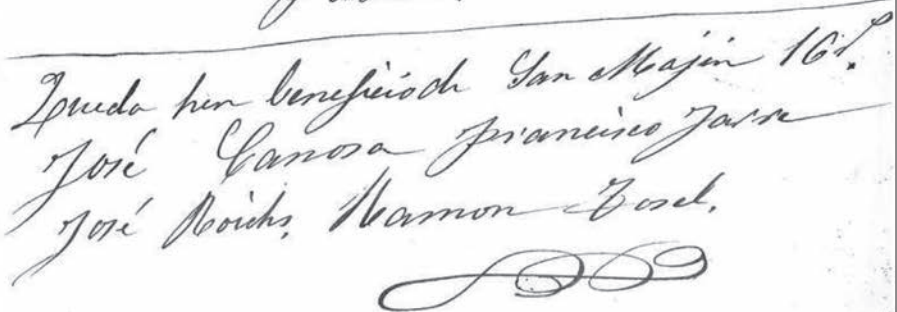 Queda hen beneficio de San Majin 16 P.
José Canosa Francisco Jarra
José Roichs, Ramon Tosel.